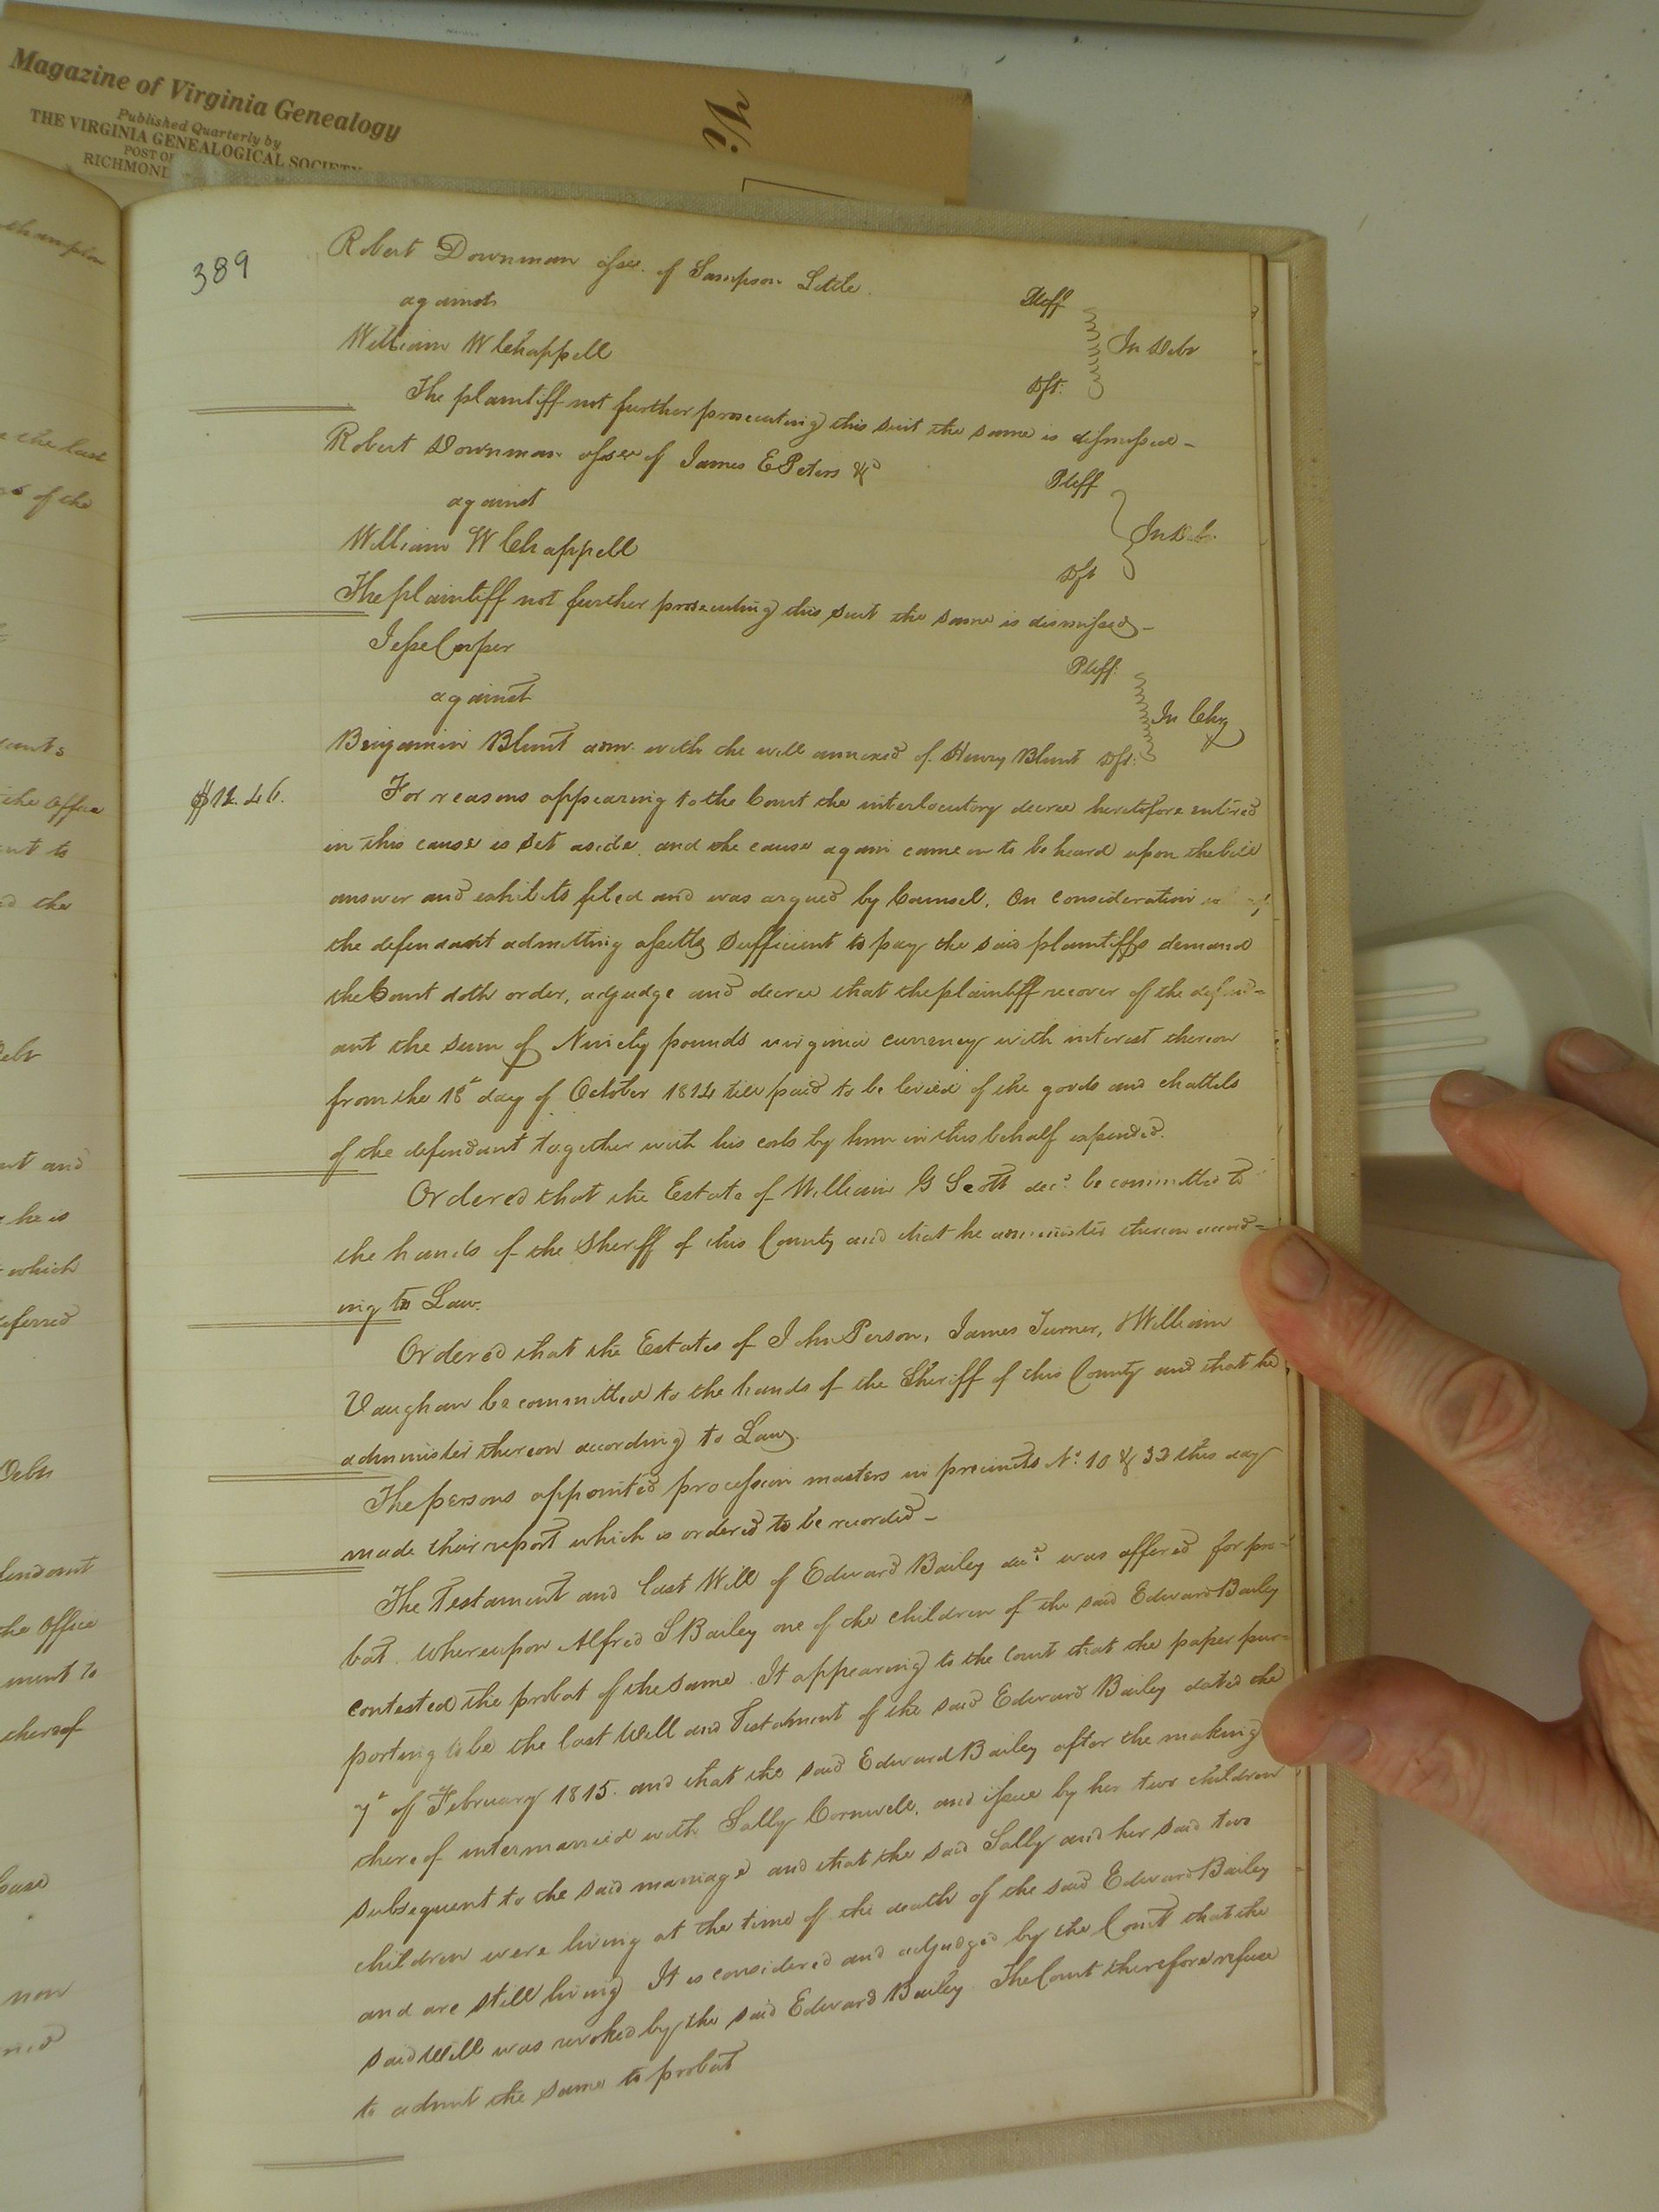 Magazine of Virginia Genealogy
Published Quarterly by
THE VIRGINIA GENEALOGICAL SOCIETY
POST OF
RICHMOND
389
Robert Downman assee. of Sampson Little
against Pltff
William W Chappell In Debt
Dft.
The plaintiff not further prosecuting this suit the same is dismissed -
Robert Downman assee of James E Peters &c
Pltff
against
William W Chappell In Debt
Dft
The plaintiff not further prosecuting this suit the same is dismissed -
Jesse Cooper
Pltff.
against
In Chy
Benjamin Blunt adm. with the will annexed of Henry Blunt Dft.
$12.46. For reasons appearing to the Court the interlocutory decree heretofore entered
in this cause is set aside and the cause again came on to be heard upon the bill
answer and exhibits filed and was argued by Counsel. On consideration
the defendant admitting assetts sufficient to pay the said plaintiffs demand
the Court doth order, adjudge and decree that the plaintiff recover of the defend-
ant the sum of Ninety pounds virginia currency with interest thereon
from the 18th day of October 1814 till paid to be levied of the goods and chattels
of the defendant together with his costs by him in this behalf expended.
Ordered that the Estate of William G Scott decd. be committed to
the hands of the Sheriff of this County and that he administer thereon accord-
ing to Law.
Ordered that the Estates of John Person, James Turner, & William
Vaughan be committed to the hands of the Sheriff of this County and that he
administer thereon according to Law.
The persons appointed procession masters in precincts No. 10 & 33 this day
made their report which is ordered to be recorded -
The Testament and last Will of Edward Bailey decd. was offered for pro-
bat. Whereupon Alfred S Bailey one of the children of the said Edward Bailey
contested the probat of the same. It appearing to the Court that the paper pur-
porting to be the last Will and Testament of the said Edward Bailey dated the
7th of February 1815. and that the said Edward Bailey after the making
thereof intermarried with Sally Cornwell, and issue by her two children
subsequent to the said marriage and that the said Sally and her said two
children were living at the time of the death of the said Edward Bailey
and are still living It is considered and adjudged by the Court that the
said Will was revoked by the said Edward Bailey The Court therefore refuse
to admit the same to probat